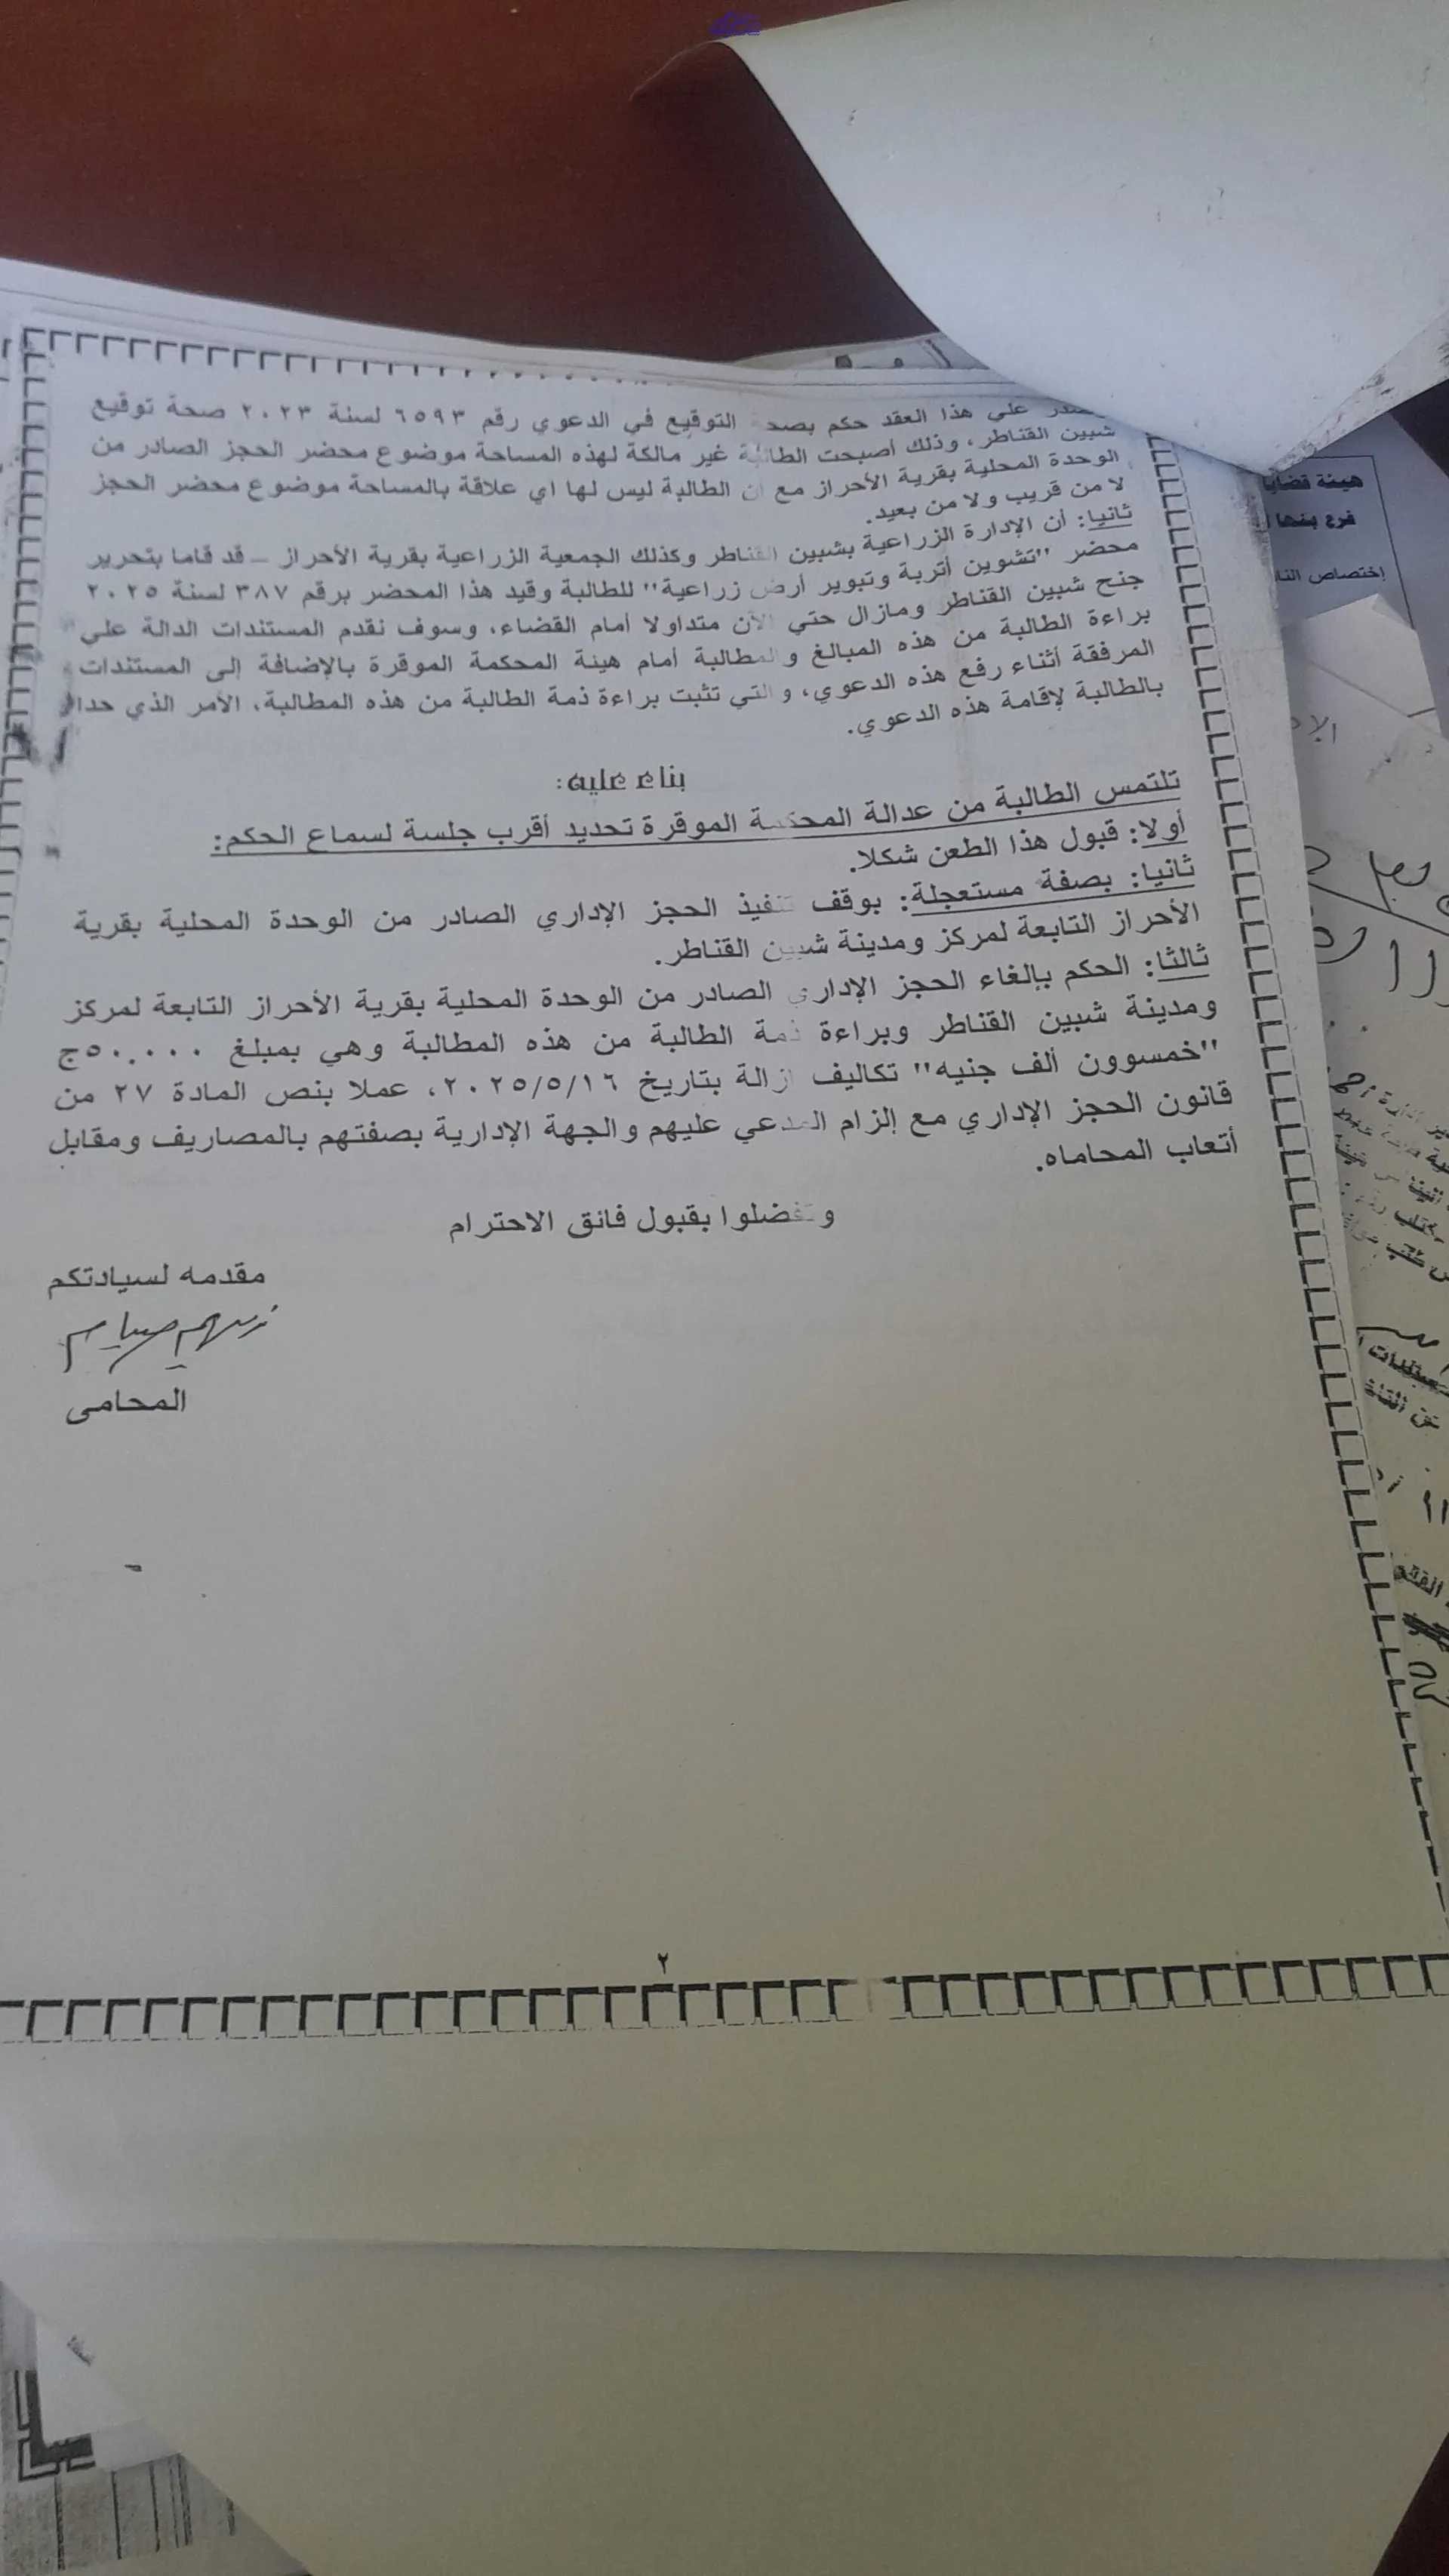 على هذا العقد حكم بصحة التوقيع في الدعوي رقم ٦٥٩٣ لسنة ٢٠٢٣ صحة توقيع
شبين القناطر، وذلك أصبحت الطالبة غير مالكة لهذه المساحة موضوع محضر الحجز الصادر من
الوحدة المحلية بقرية الأحراز مع أن الطالبة ليس لها اي علاقة بالمساحة موضوع محضر الحجز
لا من قريب ولا من بعيد.
ثانيا: أن الإدارة الزراعية بشبين القناطر وكذلك الجمعية الزراعية بقرية الأحراز – قد قاما بتحرير
محضر "تشوين أتربة وتبوير أرض زراعية" للطالبة وقيد هذا المحضر برقم ٣٨٧ لسنة ٢٠٢٥
جنح شبين القناطر ومازال حتي الآن متداولا أمام القضاء، وسوف نقدم المستندات الدالة علي
براءة الطالبة من هذه المبالغ والمطالبة أمام هيئة المحكمة الموقرة بالإضافة إلى المستندات
المرفقة أثناء رفع هذه الدعوي، والتي تثبت براءة ذمة الطالبة من هذه المطالبة، الأمر الذي حدا
بالطالبة لإقامة هذه الدعوي.
بناء عليه:
تلتمس الطالبة من عدالة المحكمة الموقرة تحديد أقرب جلسة لسماع الحكم:
أولا: قبول هذا الطعن شكلا.
ثانيا: بصفة مستعجلة: بوقف تنفيذ الحجز الإداري الصادر من الوحدة المحلية بقرية
الأحراز التابعة لمركز ومدينة شبين القناطر.
ثالثا: الحكم بإلغاء الحجز الإداري الصادر من الوحدة المحلية بقرية الأحراز التابعة لمركز
ومدينة شبين القناطر وبراءة ذمة الطالبة من هذه المطالبة وهي بمبلغ ٥٠,٠٠٠ج
"خمسوون ألف جنيه" تكاليف ازالة بتاريخ ٢٠٢٥/٥/١٦، عملا بنص المادة ٢٧ من
قانون الحجز الإداري مع إلزام المدعي عليهم والجهة الإدارية بصفتهم بالمصاريف ومقابل
أتعاب المحاماه.
وتفضلوا بقبول فائق الاحترام
مقدمه لسيادتكم
المحامى
٢
هيئة قضايا
فرع بنها
إختصاص